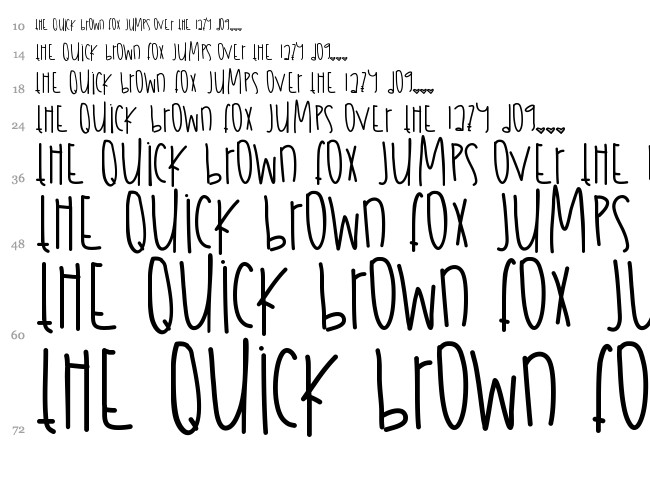 10 tHE QUiCK brOWN fOX JUMPS OVEr tHE lazy dOg...
14 tHE QUiCK brOWN fOX JUMPS OVEr tHE lazy dOg...
18 tHE QUiCK brOWN fOX JUMPS OVEr tHE lazy dOg...
24 tHE QUiCK brOWN fOX JUMPS OVEr tHE lazy dOg...
36 tHE QUiCK brOWN fOX JUMPS OVEr tHE
48 tHE QUiCK brOWN fOX JUMPS
60 tHE QUiCK brOWN fOX JU
72 tHE QUiCK brOWN fO